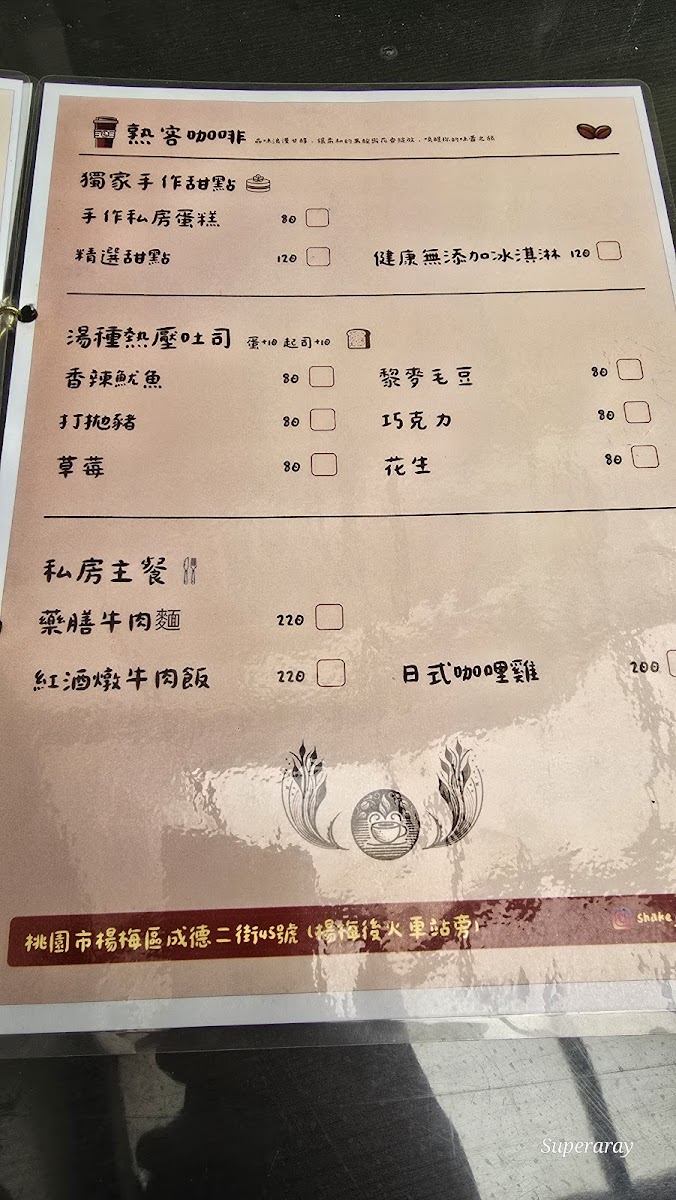 熟客咖啡
獨家手作甜點
手作私房蛋糕 80
精選甜點 120 健康無添加冰淇淋 120
湯種熱壓吐司 蛋+10 起司+10
香辣魷魚 80 藜麥毛豆 80
打拋豬 80 巧克力 80
草莓 80 花生 80
私房主餐
藥膳牛肉麵 220
紅酒燉牛肉飯 220 日式咖哩雞 200
桃園市楊梅區成德二街45號 (楊梅後火車站旁) shake_
Superaray